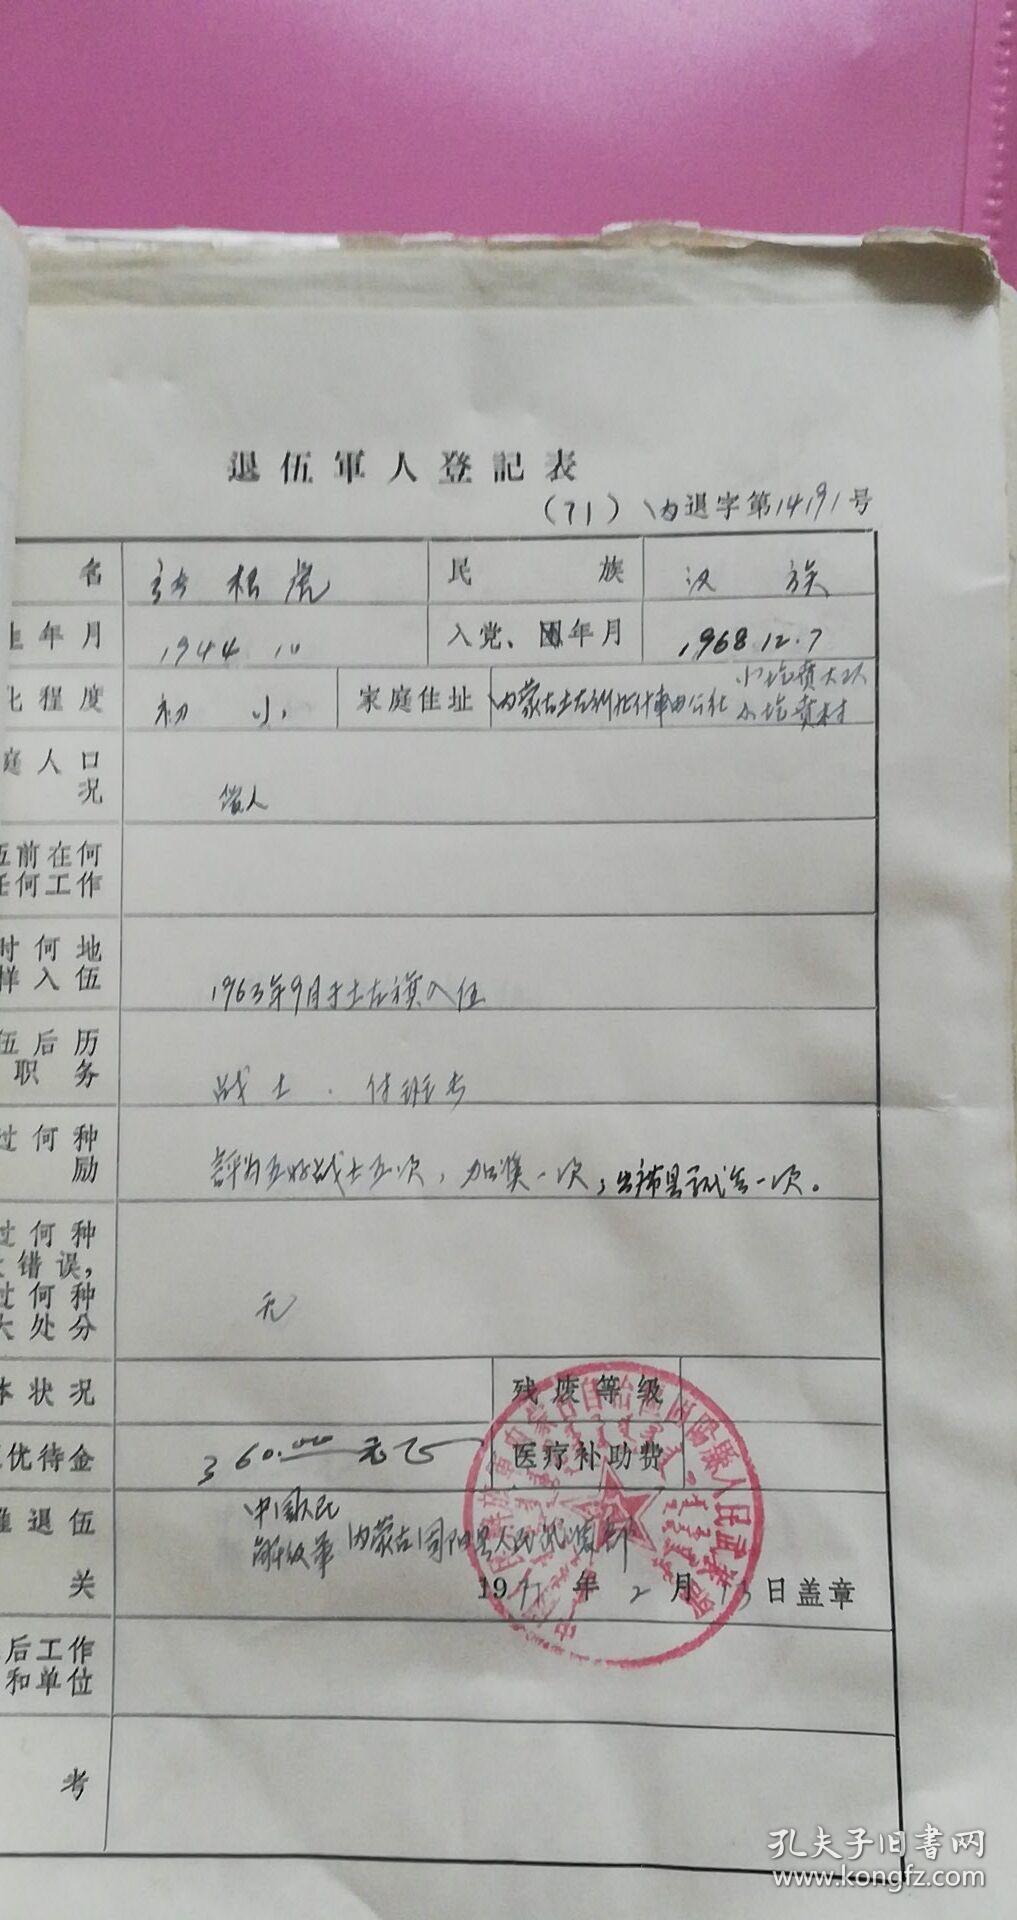 退伍軍人登記表
(71) 内退字第14191号
名 张根虎 民族 汉族
年月 1944 10 入党、团年月 1968.12.7
程度 初小 家庭住址 内蒙古土左 公社
大队
村
庭人口
况 人
前在何
何工作
时何地
样入伍 1963年9月于土左旗入伍
伍后历
职务 战士.付班长
过何种
励 評为五好战士五次,加奖一次,出席 会一次。
过何种
错误,
过何种
大处分 无
体状况 残废等级
优待金 360.00元 医疗补助费
准退伍 中国人民
解放军 内蒙古固阳县人民武装部
关 1971年2月13日盖章
后工作
和单位
考
中国人民解放軍内蒙古自治區固陽縣人民武裝部
孔夫子旧书网
www.kongfz.com